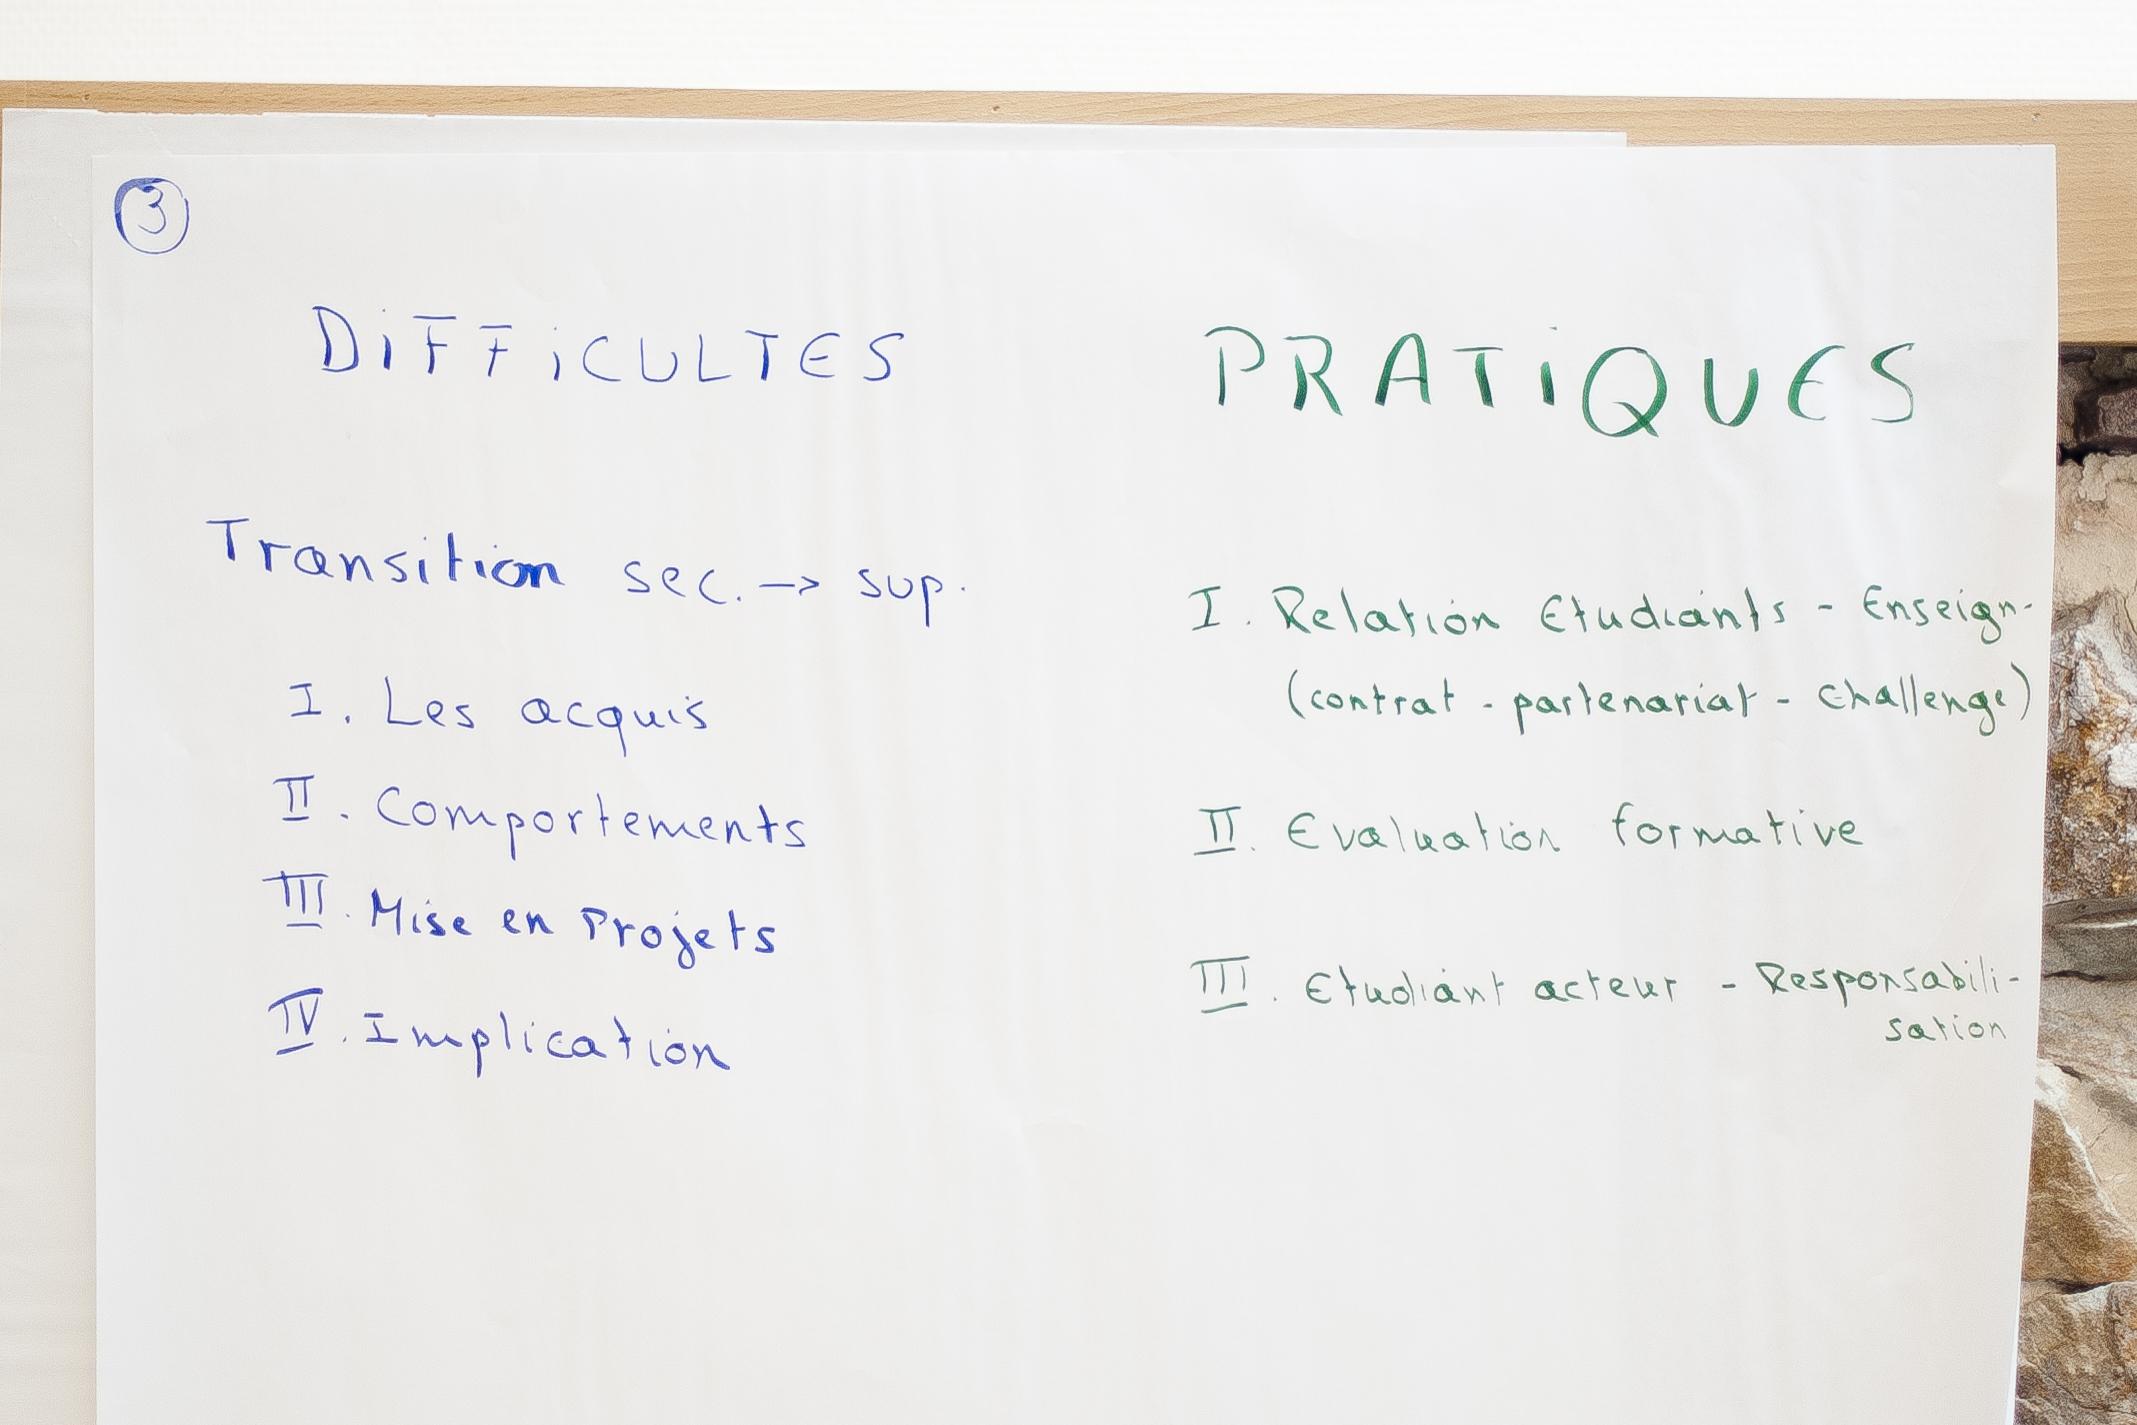 3
DiFFiCULTES
Transition sec. -> sup.
I. Les acquis
II. Comportements
III. Mise en Projets
IV. Implication
PRATiQUES
I. Relation Etudiants - Enseign.
(contrat - partenariat - challenge)
II. Evaluation formative
III. Etudiant acteur - Responsabili-
sation